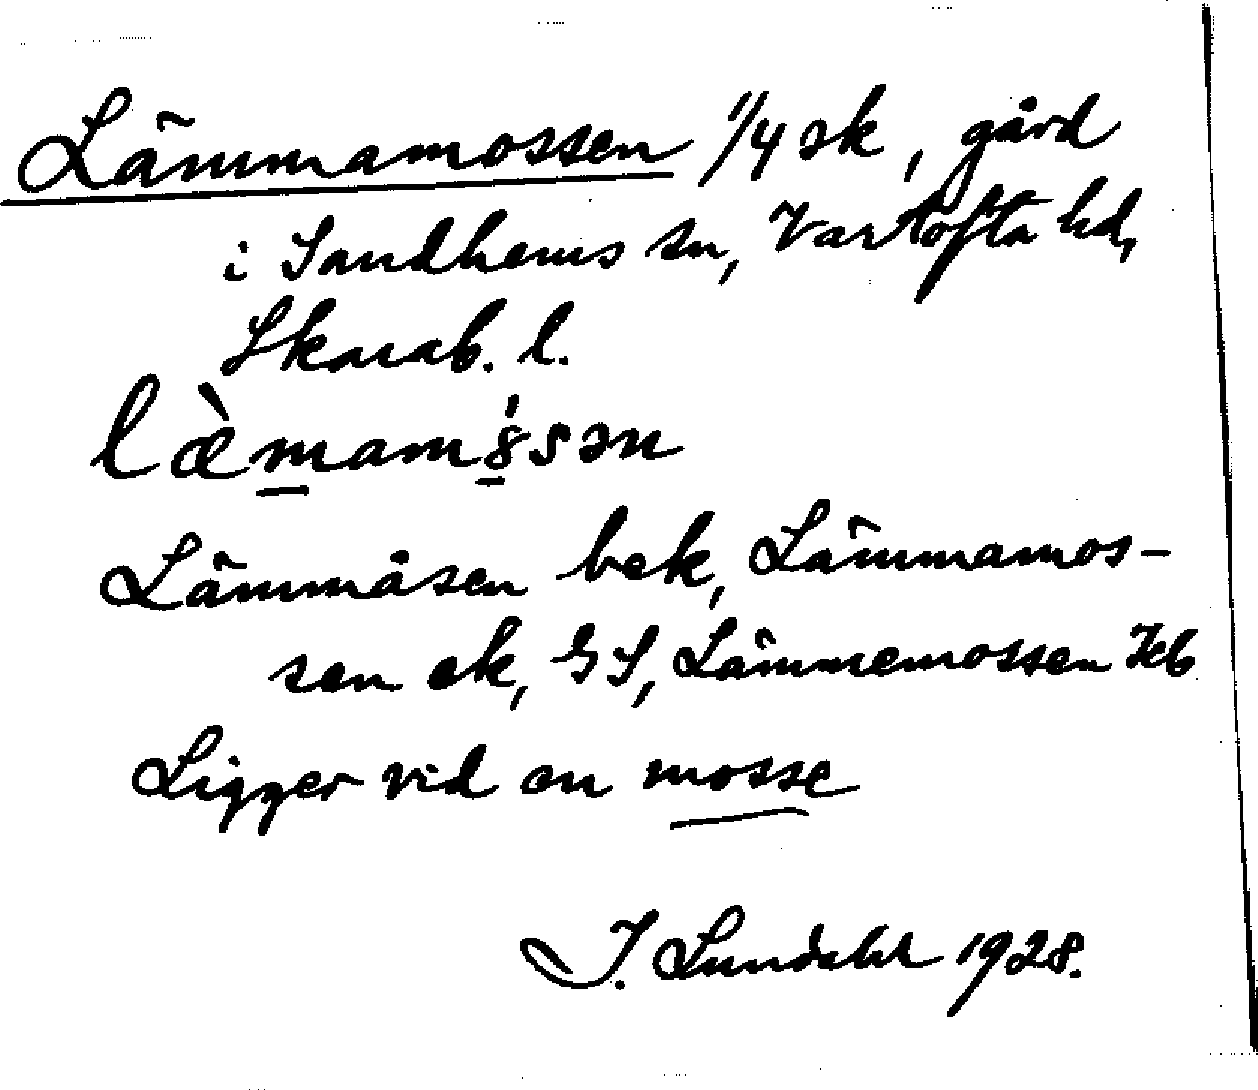 Lämmamossen 1/4 sk, gård
i Sandhems sn, Vartofta hd,
Skarab. l.
læ̀mam8́sən
Lämmåsen bek, Lämmamos-
sen ek, GS, Lämmemossen Jeb
Ligger vid en mosse
I. Lundahl 1928.